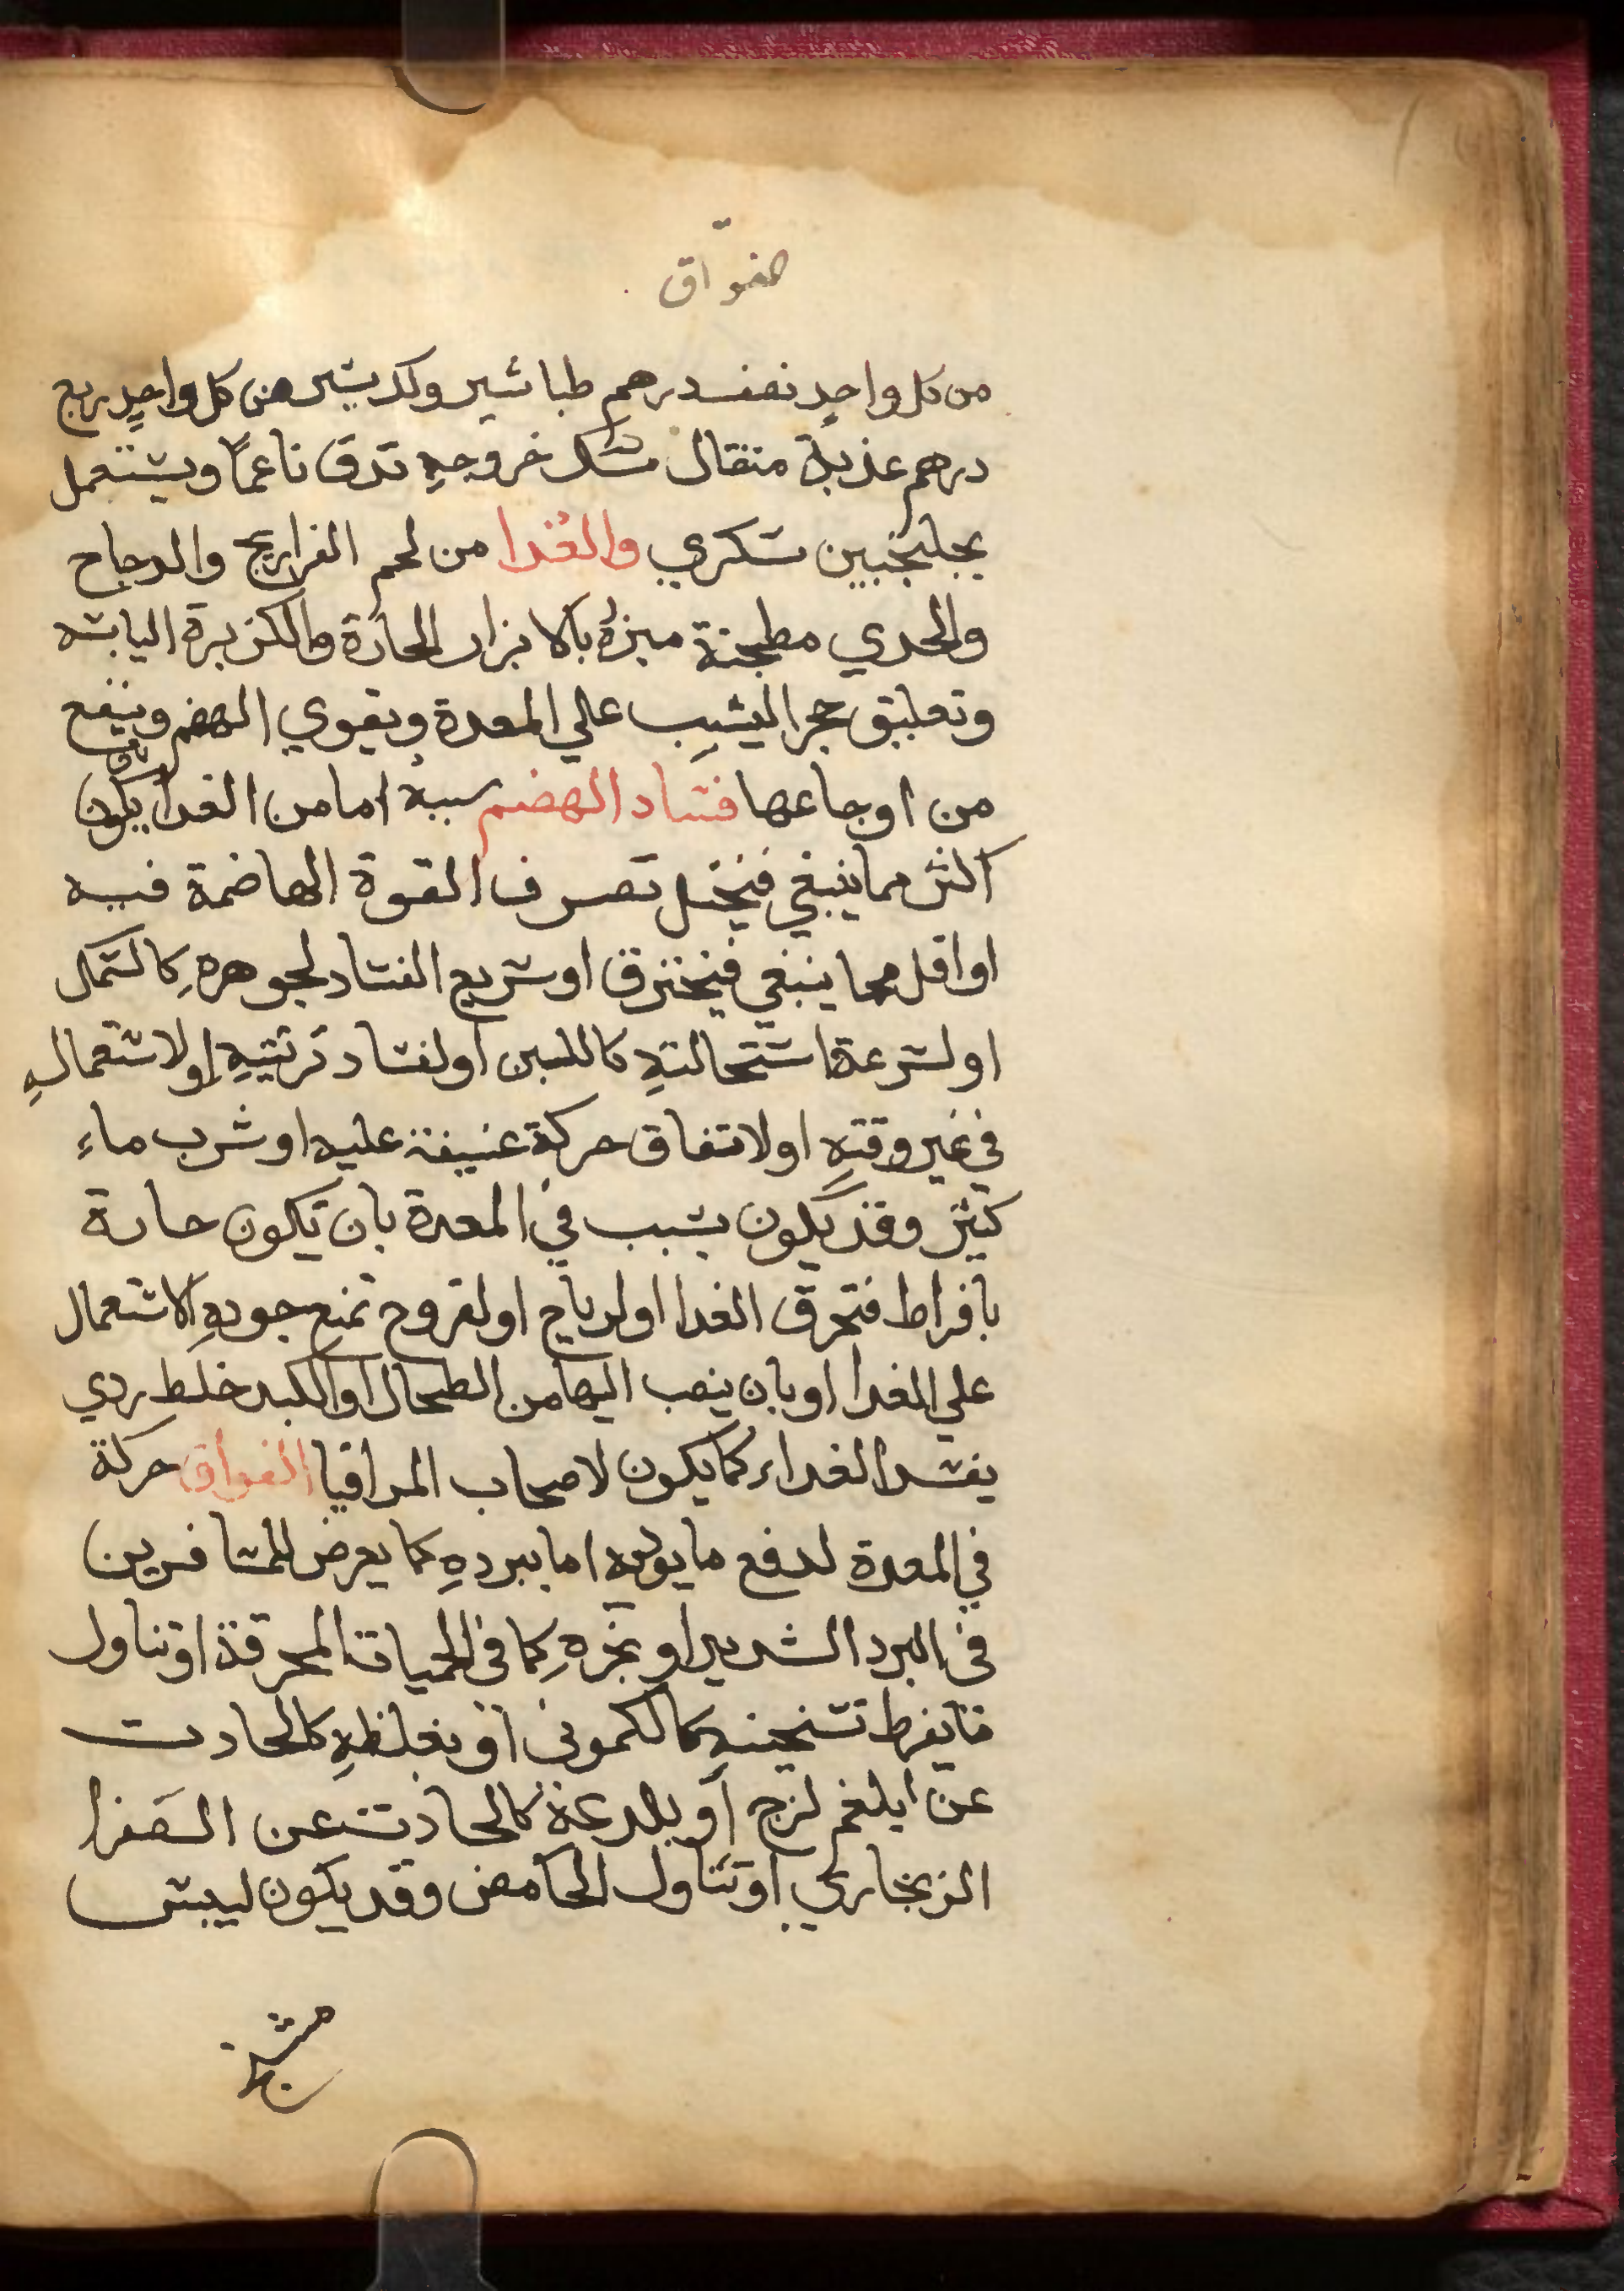 فواق
من كل واحدٍ نصف درهم طباشير وكد بشير من كل واحدٍ ربع
درهم عذبة مثقال مشك خروجهِ تدق ناعماً ويشتعمل
بجلنجبين شكري والغدا من لحم الفراريج والدجاج
والجدي مطجنة مبزرة بالابزار الحارة والكزبرة اليابشه
وتعليق حجر اليشب علي المعدة ويقوي الهضم وينفع
من اوجاعها فشاد الهضم سببه اما من الغدا يكون
اكثر مما ينبغي فيختل تصرف القوة الهاضمة فيه
او اقل مما ينبغي فيحترق او شريع الفشاد لجوهرهِ كالشمك
او لشرعة اشتحالتهِ كاللبن او لفشاد ترتيبهِ او لاشتعمالهِ
في غير وقتهِ او لاتفاق حركة عنيفة عليه او شرب ماء
كثير وقد يكون بشبب في المعدة بان تكون حارة
بافراط فتحرق الغدا او لرياح او لقروح تمنع جودهِ الاشتعمال
علي الغدا او بان ينصب اليها من الطحال او الكبد خلط ردي
يفشد الغداء كما يكون لاصحاب المراقيا الفواق حركة
في المعدة لدفع ما يوديه اما ببردهِ كما يعرض للمشافرين
في البرد الشديد او بحرهِ كما في الحميات المحرقة او تناول
ما يفرط تشخينهِ كالكموني او بغلظهِ كالحادث
عن ابلغم لزج او بلدعة كالحادث عن الصفرا
الزنجاري او تناول الحامض وقد يكون ليبش